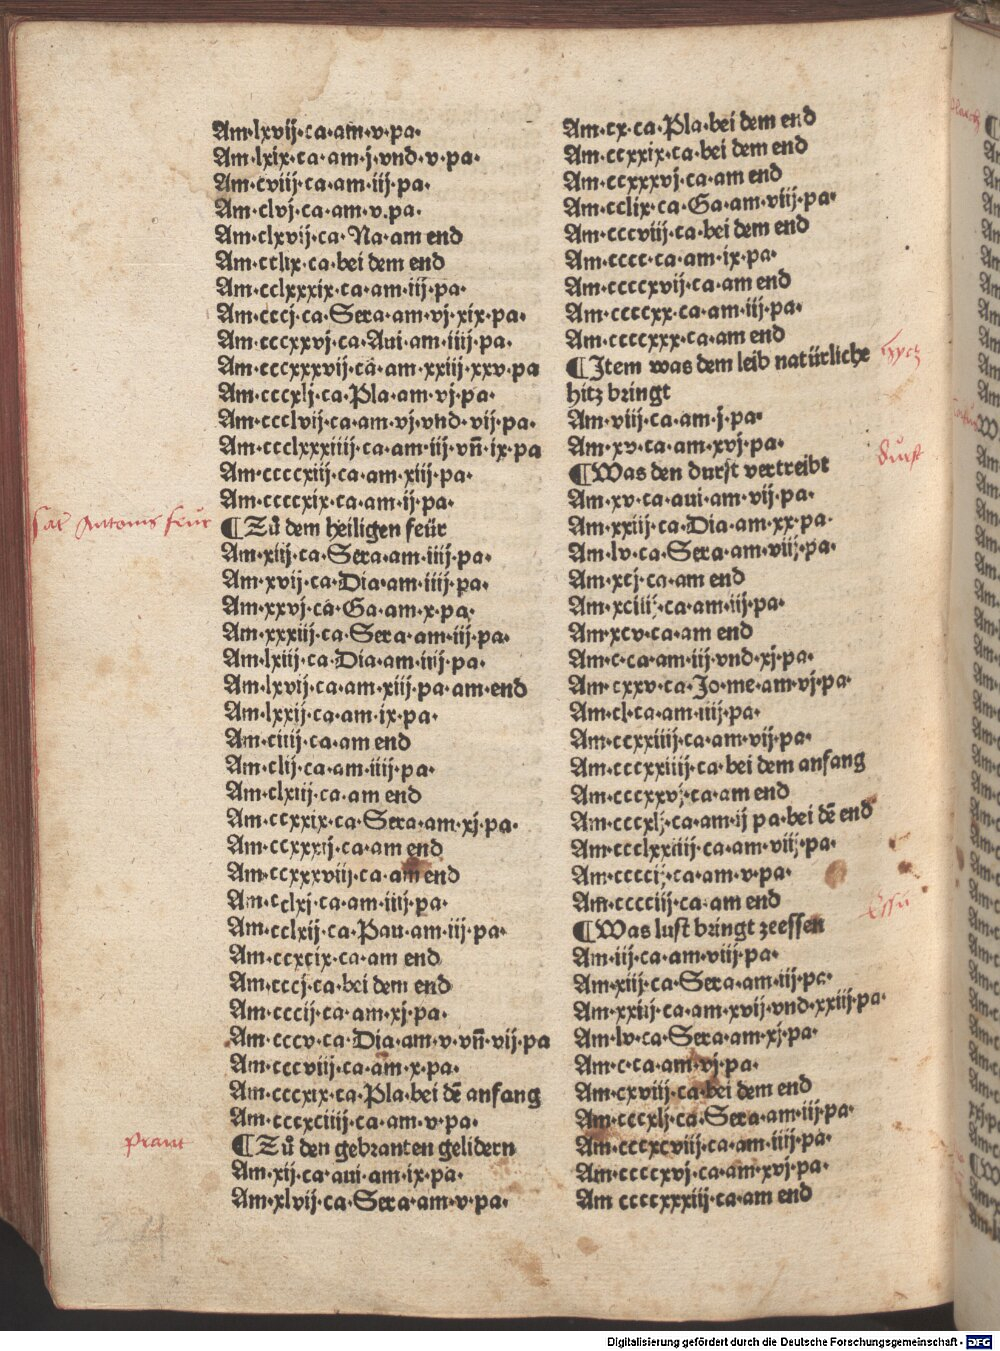 Am·lxvij·ca·am·v·pa·
Am·lxix·ca·am·j·vnd·v·pa·
Am·cviij·ca·am·iij·pa·
Am·clvj·ca·am·v·pa·
Am·clxvij·ca·Na·am end
Am·cclix·ca·bei dem end
Am·cclxxxix·ca·am·iij·pa·
Am·cccj·ca·Sera·am·vj·xix·pa·
Am·cccxxvj·ca·Aui·am·iiij·pa·
Am·cccxxxvij·ca·am·xxiij·xxv·pa
Am·cccxlj·ca·Pla·am·vj·pa·
Am·ccclvij·ca·am·vj·vnd·vij·pa·
Am·ccclxxxiiij·ca·am·iij·vn̄·ix·pa
Am·ccccxiij·ca·am·xiij·pa·
Am·ccccxix·ca·am·ij·pa·
sāt Antonis feür
¶Zů dem heiligen feür
Am·xiij·ca·Sera·am·iiij·pa·
Am·xvij·ca·Dia·am·iiij·pa·
Am·xxvj·ca·Ga·am·x·pa·
Am·xxxiij·ca·Sera·am·iij·pa·
Am·lxiij·ca·Dia·am·iiij·pa·
Am·lxvij·ca·am·xiij·pa·am·end
Am·lxxij·ca·am·ix·pa·
Am·ciiij·ca·am end
Am·clij·ca·am·iiij·pa·
Am·clxiij·ca·am end
Am·ccxxix·ca·Sera·am·xj·pa·
Am·ccxxxij·ca·am end
Am·ccxxxviij·ca·am end
Am·cclxj·ca·am·iiij·pa·
Am·cclxij·ca·Pau·am·iij·pa·
Am·ccxcix·ca·am end
Am·cccj·ca·bei dem end
Am·cccij·ca·am·xj·pa·
Am·cccv·ca·Dia·am·v·vn̄·vij·pa
Am·cccviij·ca·am·x·pa·
Am·cccxix·ca·Pla·bei dē anfang
Am·cccxciiij·ca·am·v·pa·
prant
¶Zů den gebranten gelidern
Am·xij·ca·aui·am·ix·pa·
Am·xlvij·ca·Sera·am·v·pa·
Am·cx·ca·Pla·bei dem end
Am·ccxxix·ca·bei dem end
Am·ccxxxvj·ca·am end
Am·cclix·ca·Ga·am·viij·pa·
Am·cccviij·ca·bei dem end
Am·cccc·ca·am·ix·pa·
Am·ccccxvij·ca·am end
Am·ccccxx·ca·am·iij·pa·
Am·ccccxxx·ca·am end
¶Item was dem leib natürliche
hitz bringt
Am·viij·ca·am·j·pa·
Am·xv·ca·am·xvj·pa·
durst
¶Was den durst vertreibt
Am·xv·ca·aui·am·vij·pa·
Am·xxiij·ca·Dia·am·xx·pa·
Am·lv·ca·Sera·am·viij·pa·
Am·xcj·ca·am end
Am·xciiij·ca·am·iij·pa·
Am·xcv·ca·am end
Am·c·ca·am·iij·vnd·xj·pa·
Am·cxxv·ca·Jo·me·am·vj·pa·
Am·cl·ca·am·iiij·pa·
Am·ccxxiiij·ca·am·vij·pa·
Am·cccxxiiij·ca·bei dem anfang
Am·cccxxvj·ca·am end
Am·cccxlj·ca·am·ij pa·bei dē end
Am·ccclxxiiij·ca·am·viij·pa·
Am·ccccij·ca·am·v·pa·
Am·cccciij·ca·am end
¶Was lust bringt zeessen
Am·iij·ca·am·viij·pa·
Am·xiij·ca·Sera·am·iij·pa·
Am·xxiij·ca·am·xvij·vnd·xxiij·pa·
Am·lv·ca·Sera·am·xj·pa·
Am·c·ca·am·vj·pa·
Am·cxviij·ca·bei dem end
Am·cccxlj·ca·Sera·am·iij·pa·
Am·cccxcviij·ca·am·iiij·pa·
Am·ccccxvj·ca·am·xvj·pa·
Am ccccxxxiij·ca·am end
Digitalisierung gefördert durch die Deutsche Forschungsgemeinschaft - DFG